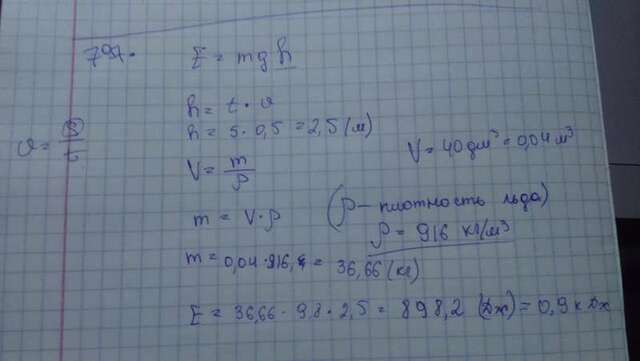 797.
E = mgh
h = t · υ
υ = S/t
h = 5 · 0,5 = 2,5 (м)
V = 40 дм³ = 0,04 м³
V = m/ρ
m = V · ρ
(ρ – плотность льда)
ρ = 916 кг/м³
m = 0,04 · 916, = 36,66 (кг)
E = 36,66 · 9,8 · 2,5 = 898,2 (Дж) = 0,9 кДж